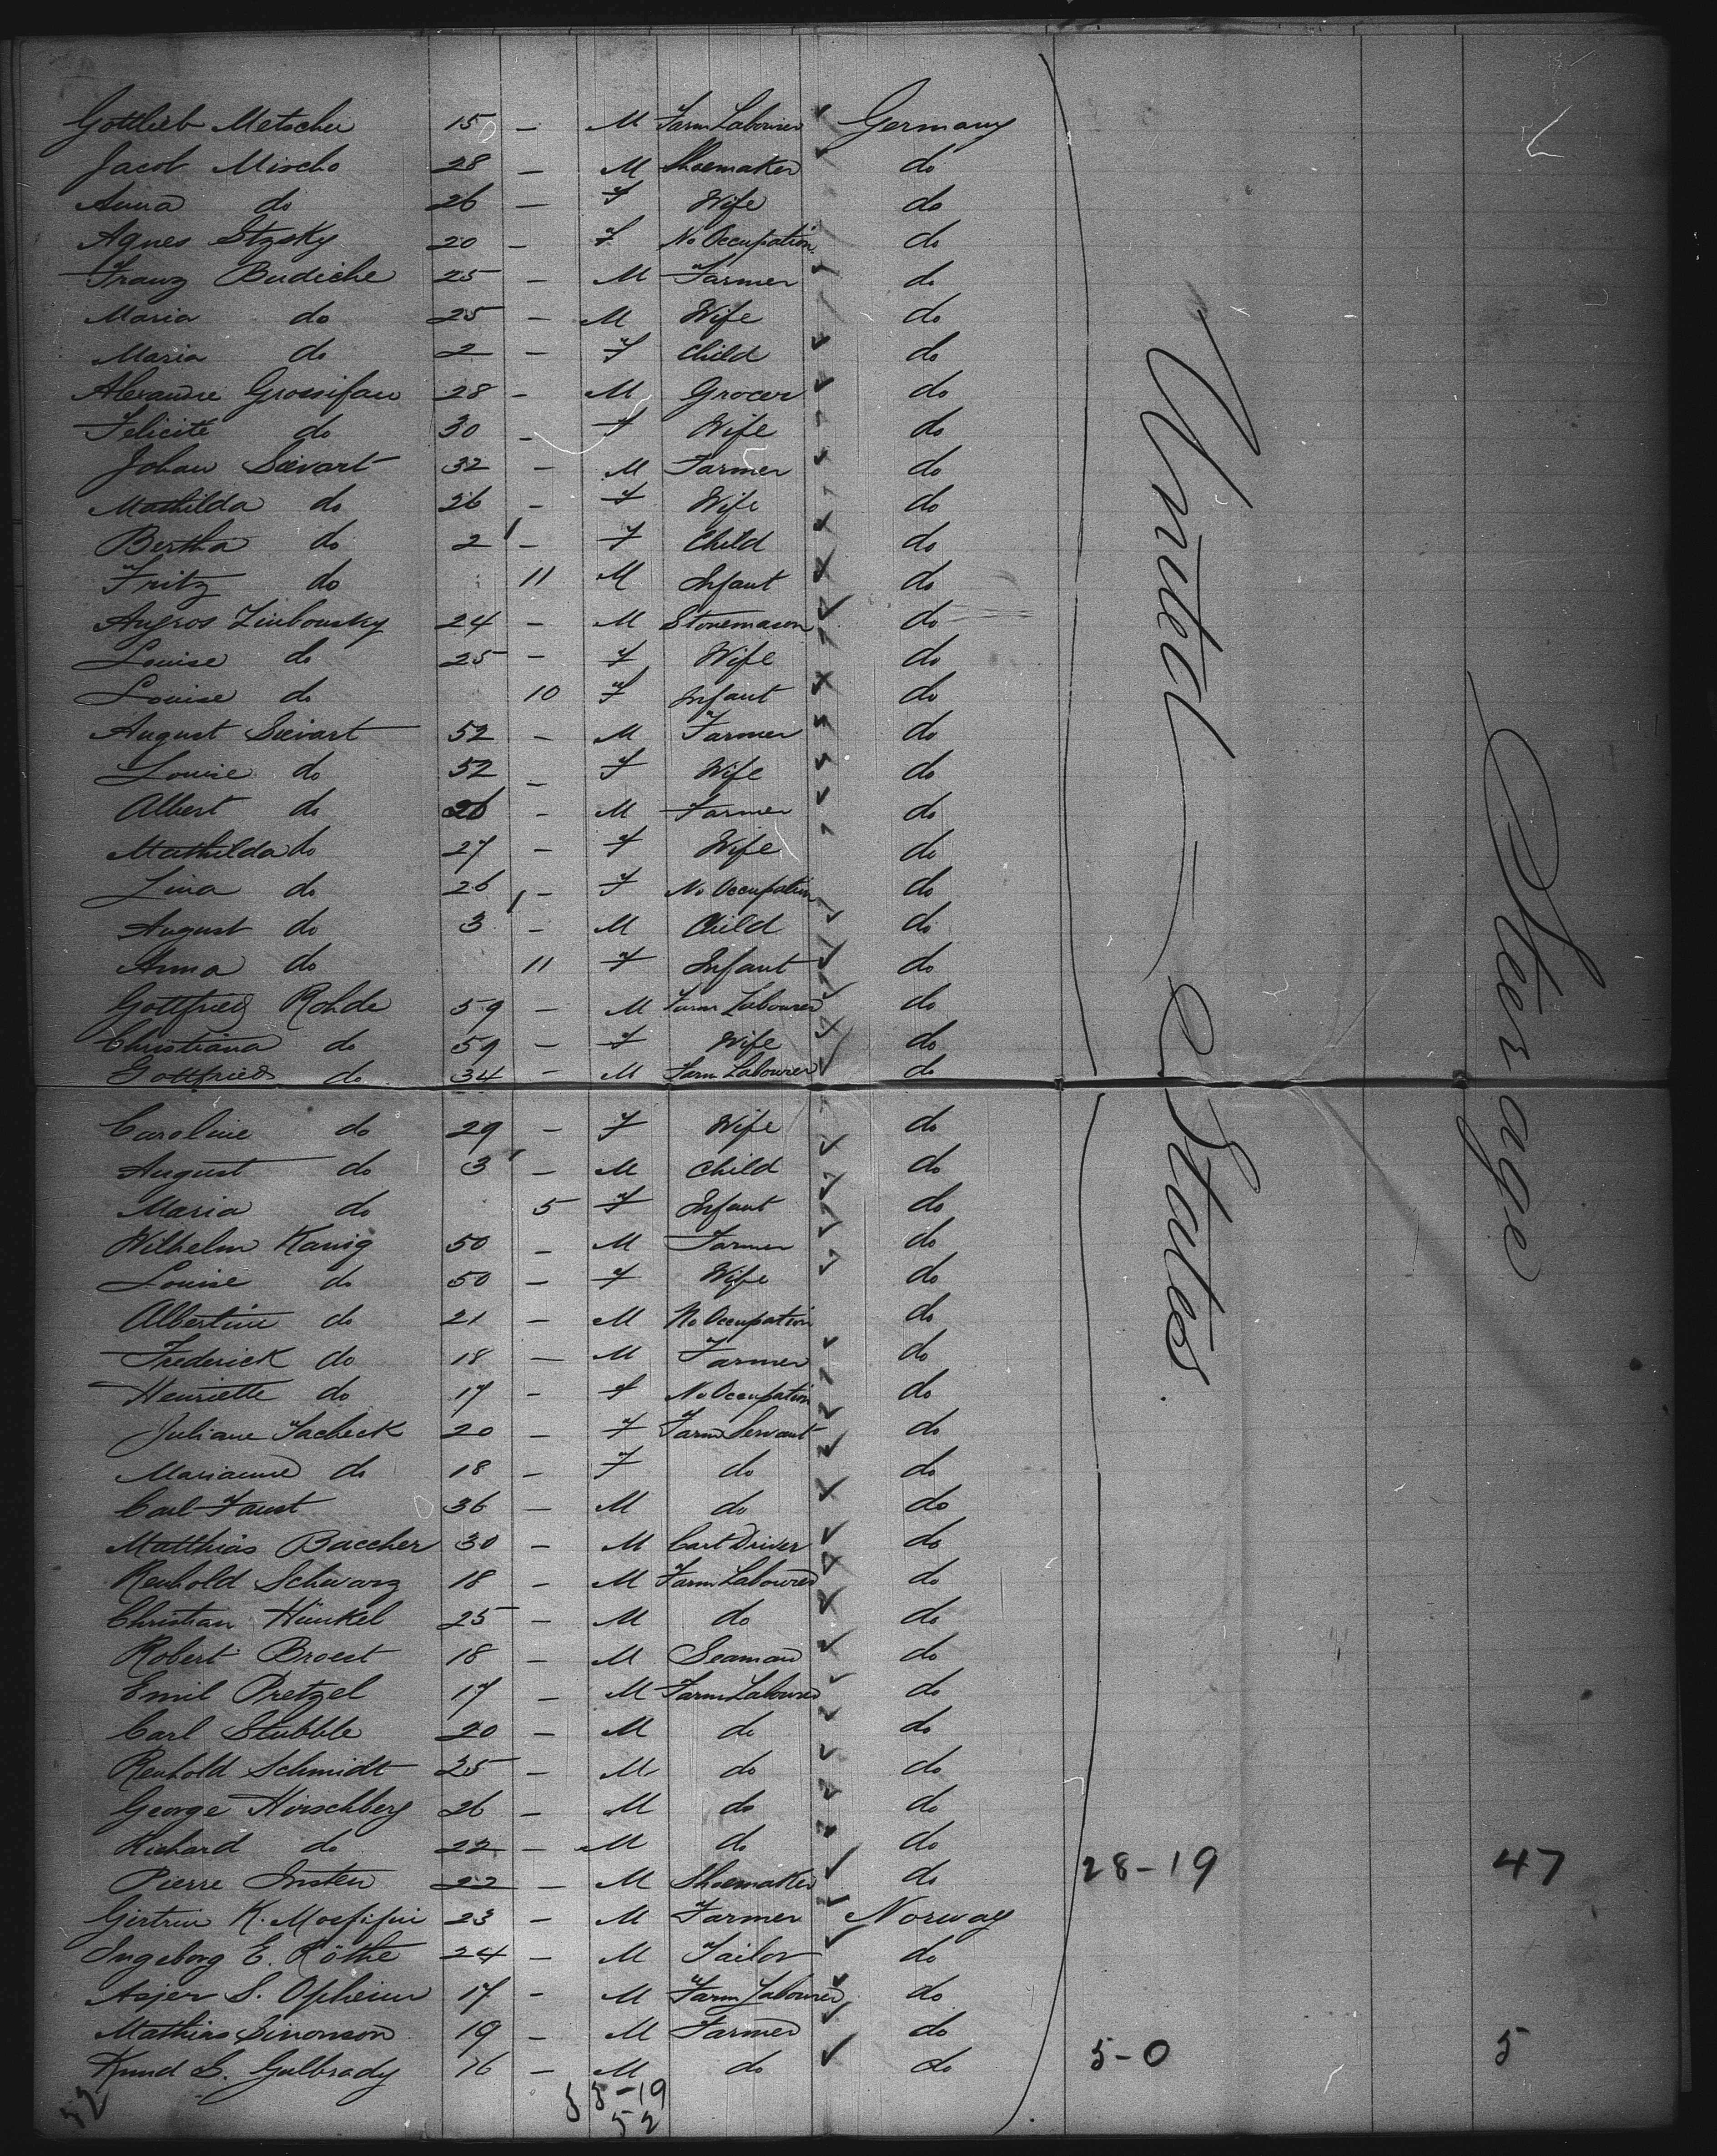 Gottlieb Metscher 15 - M Farm Labourer Germany
Jacob Mischo 28 - M Shoemaker do
Anna do 26 - F Wife do
Agnes Stzsky 20 - F No Occupation do
Franz Budiche 25 - M Farmer do
Maria do 25 - M Wife do
Maria do 2 - F Child do
Alexandre Grossifau 28 - M Grocer do
Felicité do 30 - F Wife do
Johan Sievart 32 - M Farmer do
Mathilda do 26 - F Wife do
Bertha do 2 - F Child do
Fritz do 11 M Infant do
Augros Linbousky 24 - M Stonemason do
Louise do 25 - F Wife do
Louise do 10 F Infant do
August Sievart 52 - M Farmer do
Louise do 52 - F Wife do
Albert do 26 - M Farmer do
Mathilda do 27 - F Wife do
Lina do 26 - F No Occupation do
August do 3 - M Child do
Anna do 11 F Infant do
Gottfried Rohde 59 - M Farm Labourer do
Christiana do 59 - F Wife do
Gottfried do 34 - M Farm Labourer do
Caroline do 29 - F Wife do
August do 3 - M Child do
Maria do 5 F Infant do
Wilhelm Kanig 50 - M Farmer do
Louise do 50 - F Wife do
Albertine do 21 - M No Occupation do
Frederick do 18 - M Farmer do
Henriette do 17 - F No Occupation do
Juliane Sacheck 20 - F Farm Servant do
Marianne do 18 - F do do
Carl Faust 36 - M do do
Matthias Baccher 30 - M Cart Driver do
Renhold Schwarz 18 - M Farm Labourer do
Christian Hünkel 25 - M do do
Robert Broect 18 - M Seaman do
Emil Pretzel 17 - M Farm Labourer do
Carl Stubble 20 - M do do
Renhold Schmidt 25 - M do do
George Hirschberg 26 - M do do
Richard do 22 - M do do
Pierre Insten 22 - M Shoemaker do 28-19 47
Girtrin K. 23 - M Farmer Norway
Ingeborg E. Röthe 24 - M Tailor do
Asjer S. Opheim 17 - M Farm Labourer do
Mathias Simonson 19 - M Farmer do
Knud G. Gulbrady 16 - M do do 5-0 5
52
33-19
52
United States
Steerage